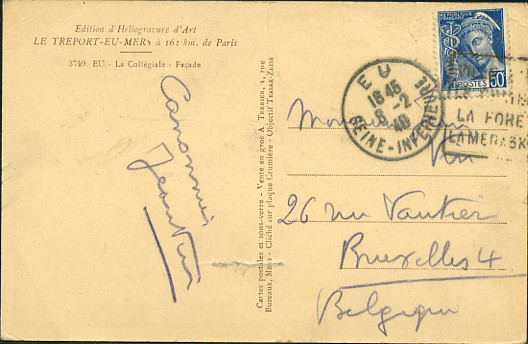 Edition d'Héliogravure d'Art
LE TREPORT-EU-MERS à 162 km. de Paris
3749. EU. - La Collégiale - Façade
Cartes postales et sous-verre - Vente en gros A. TERRIER, 1, rue
Bureaux, MERS - Cliché sur plaque Crumière - Objectif TESSAR-ZEISS
REPUBLIQUE FRANÇAISE
POSTES 50
EU
18 45
8-2
40
SEINE-INFERIEURE
LA FORE
LA MER A 3K
Monsieur
26 rue Vautier
Bruxelles 4
Belgique